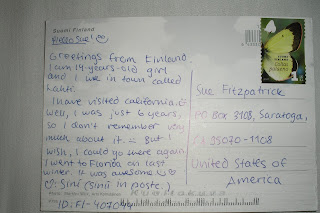 Suomi Finland
Hello Sue! ☺
Greetings from Finland.
I am 14-years-old girl
and I live in town called
Lahti.
I have visited California. :D
Well, I was just 6 years,
so I don't remember very
much about it. But I
wish, I could go there again.
I went to Florida on last
winter. It was awesome
☺: Sini (sinii in postc.)
ID: FI-40704
Sue Fitzpatrick
PO Box 3108, Saratoga,
CA 95070-1108
United States of
America